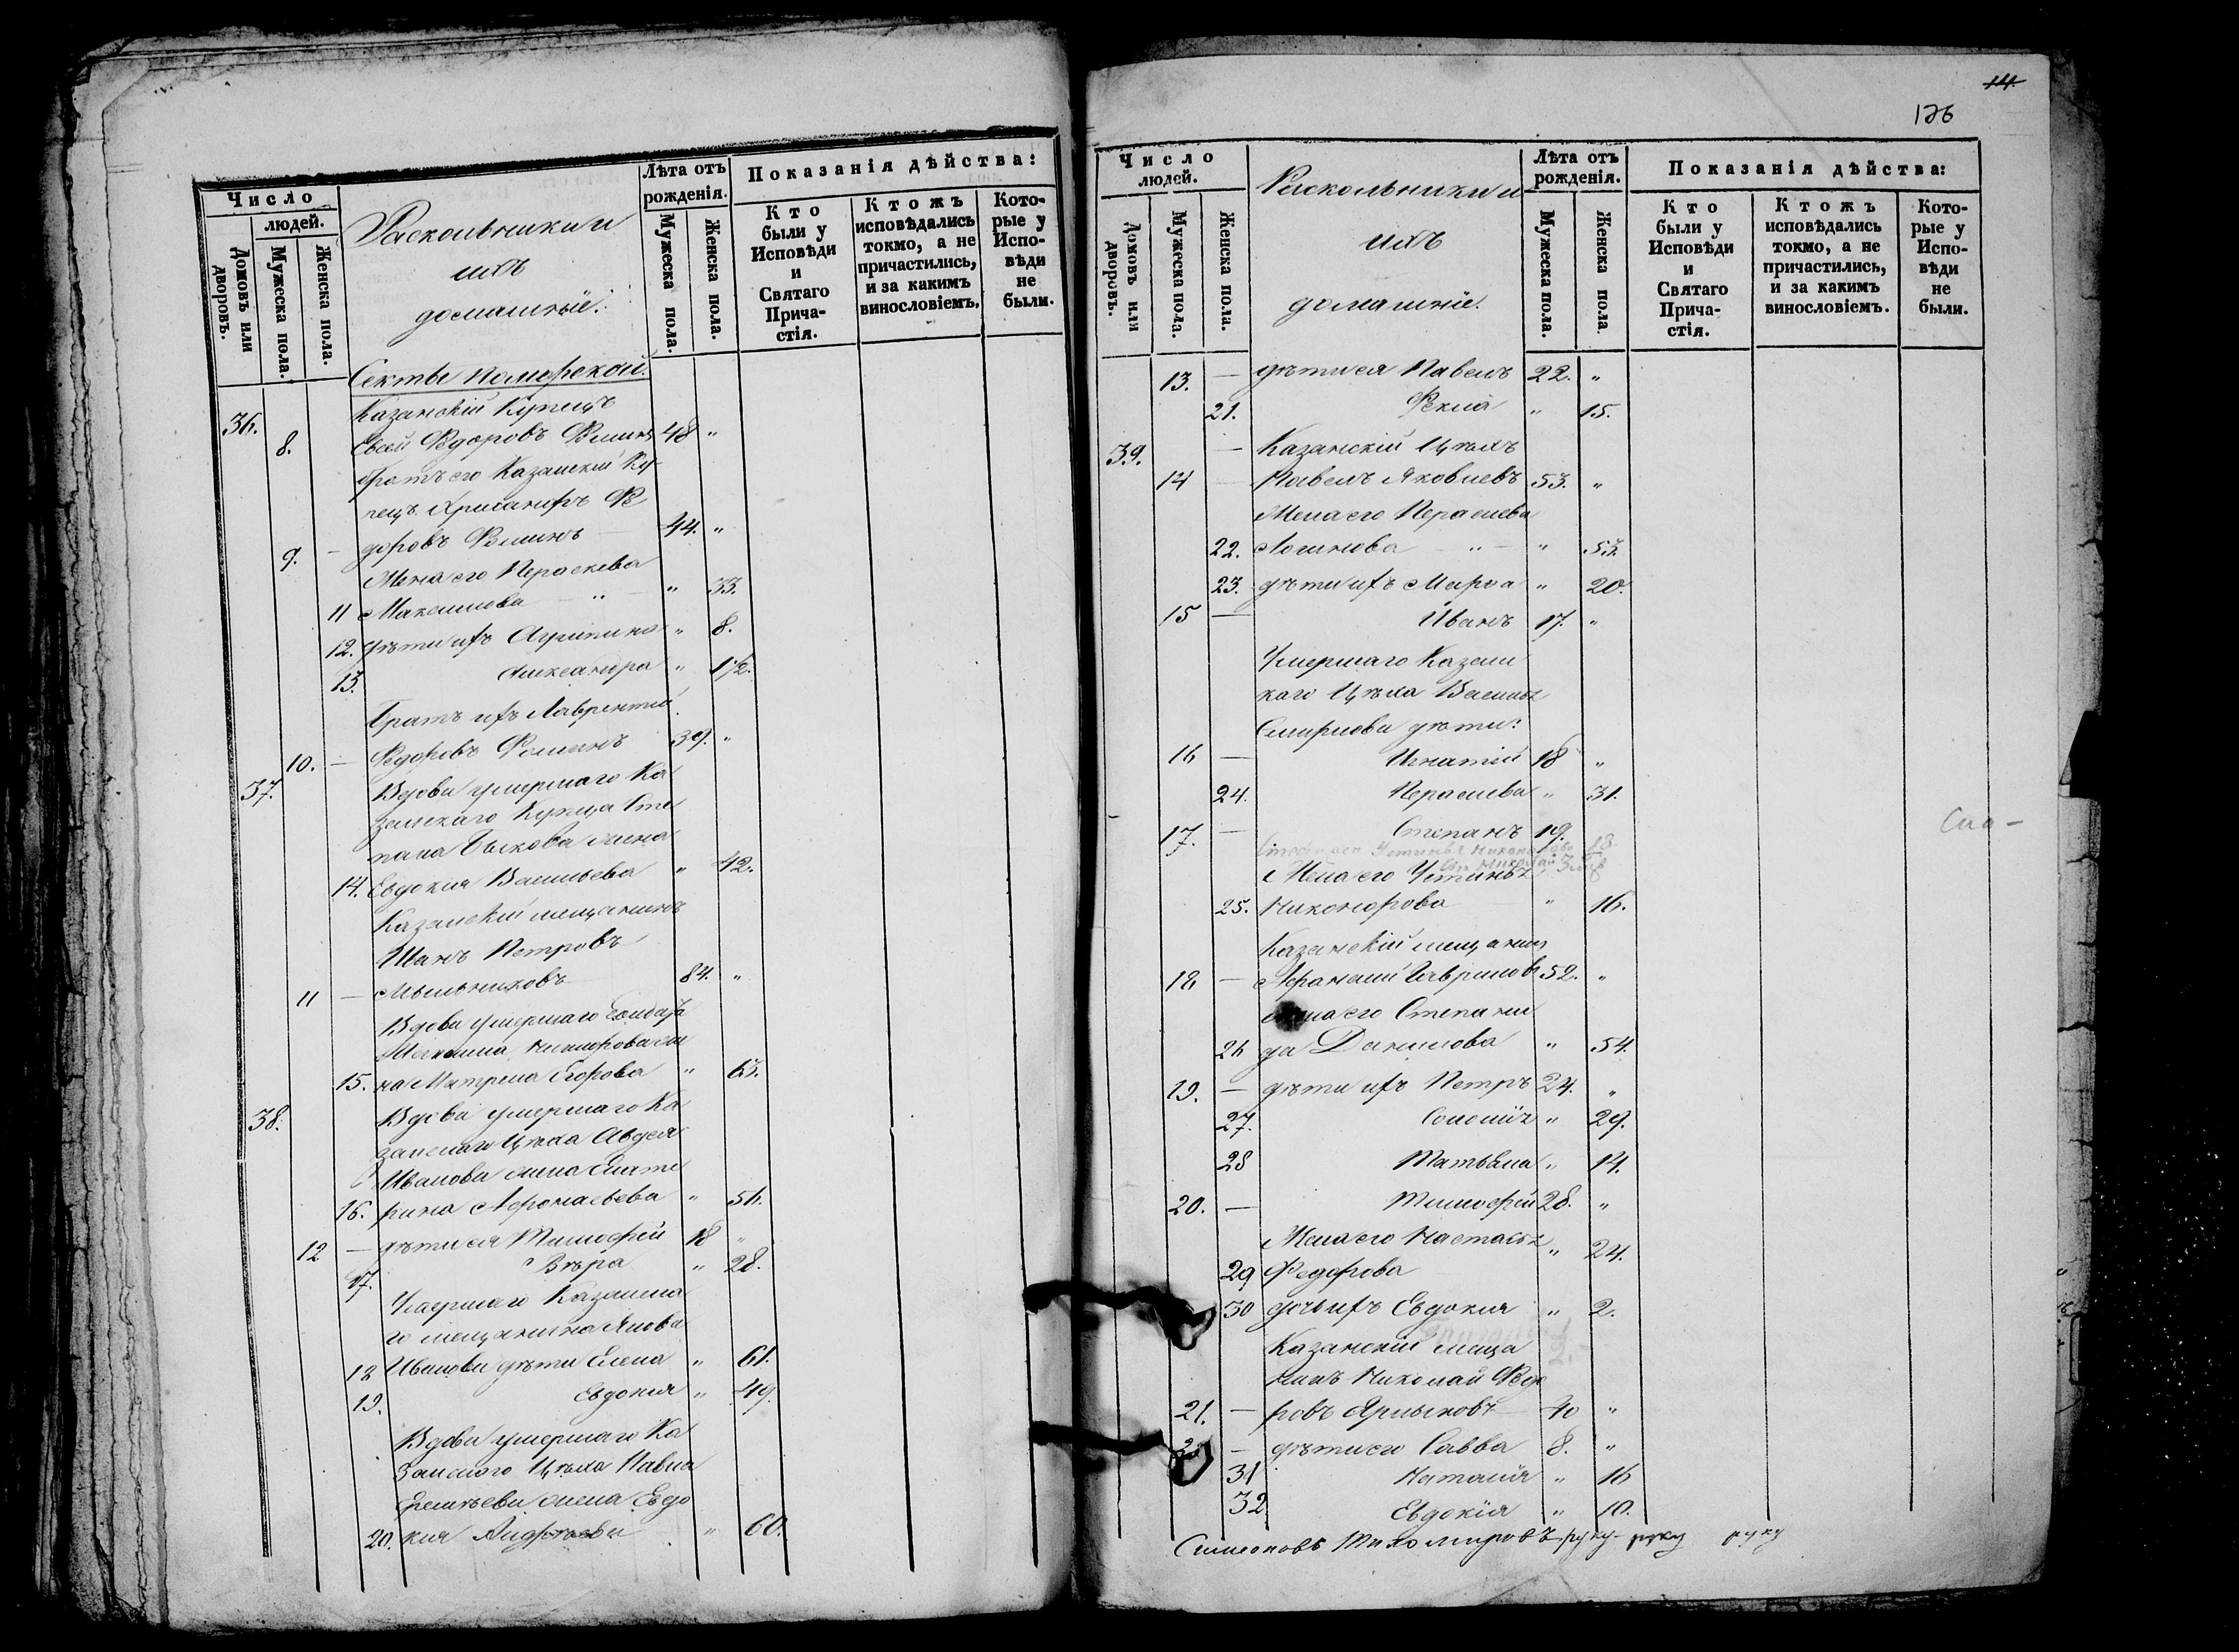 Число
людей.
Домовъ или дворовъ.
Мужеска пола.
Женска пола.
Раскольники и
ихъ
домашніе.
Лѣта отъ
рожденія.
Мужеска пола.
Женска пола.
Показанія дѣйства:
Кто
были у
Исповѣди
и
Святаго
Прича-
стія.
Ктожъ
исповѣдались
токмо, а не
причастились,
и за какимъ
винословіемъ.
Кото-
рые у
Испо-
вѣди
не
были.
Секты поморской.
36. Казанскій Купецъ
8. Евсей Федоровъ Фоминъ 48 "
братъ его Казанскій Ку
пецъ Хрисанфъ Фе
9. — доровъ Фоминъ 44. "
Жена его Параскева
11 Максимова " 33.
12. дѣти ихъ Агрипина " 8.
13. Александра " 1/2.
Братъ ихъ Лаврентій
10. — Федоровъ Фоминъ 39. "
37. Вдова умершаго Ка
занскаго Купца Сте
пана Быкова жена
14. Евдокия Васильева " 42.
Казанскій мещанинъ
Иванъ Петровъ
11 — Мыльниковъ 84. "
Вдова умершаго
15. на Матрена Егорова " 63.
38. Вдова умершаго Ка
занскаго Цѣха Авдея
Иванова жена Екате
16. рина Афонасьева " 56.
12 — дѣти ея Тимофей 18 "
17. Вѣра " 28.
Умершаго Казанска
го мещанина Якова
18 Иванова дѣти Елена " 61.
19. Евдокия " 49.
Вдова умершаго Ка
занского Цѣха Павла
Еремѣева жена Евдо
20. кия Андреева " 60.
14.
176
Число
людей.
Домовъ или дворовъ.
Мужеска пола.
Женска пола.
Раскольники и
ихъ
домашніе.
Лѣта отъ
рожденія.
Мужеска пола.
Женска пола
Показанія дѣйства:
Кто
были у
Исповѣди
и
Святаго
Прича-
стія.
Ктожъ
исповѣдались
токмо, а не
причастились,
и за какимъ
винословіемъ.
Кото-
рые у
Испо-
вѣди
не
были.
13. — дѣти ея Павелъ 22. "
21. Фекла " 15.
39. — Казанскій Цѣхъ
14 — Павелъ Яковлевъ 53. "
Жена его Параскева
22. Логинова " 53.
23. дѣти ихъ Марфа " 20.
15 — Иванъ 17. "
Умершаго Казанс
каго Цѣха Василья
Смирнова дѣти:
16 — Игнатій 18 "
24. Параскева " 31.
17. — Степанъ 19.
Жена его Устинья
25. Никонорова " 16.
Казанскій мещанинъ
18 — Афанасій Гавриловъ 52. "
жена его Степани
26 да Данилова " 54.
19. — дѣти ихъ Петръ 24. "
27. Соломія " 29.
28 Татьяна " 14.
20. — Тимофей 28. "
Жена его Настасья " 24.
29 Федорова
30 дочь ихъ Евдокия " 2.
Казанскій меща
нинъ Николай Федо
21. — ровъ Ярлыковъ 40 "
22 — дѣти его Савва 8. "
31 Наталія " 16
32 Евдокія " 10.
Симеоновъ Тихомировъ руку руку руку